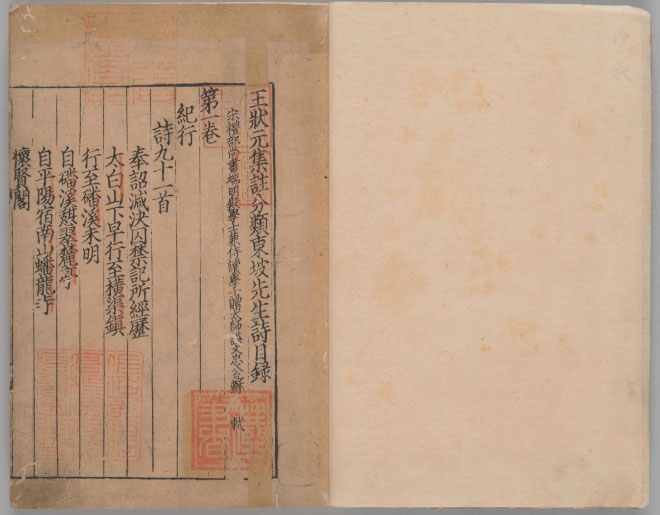 王狀元集註分類東坡先生詩目錄
宋禮部尚書端明殿學士兼侍讀學士贈太師謚文忠公蘇 軾
第一卷
紀行
詩九十一首
奉詔減決囚禁記所經歷
太白山下早行至橫渠鎮
行至磻溪未明
自磻溪趍翠麓亭
自平陽宿南山蟠龍寺
懷賢閣